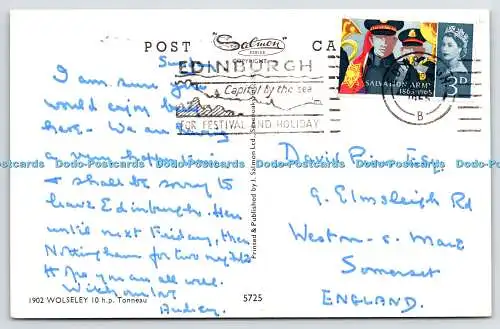 POST CARD
"Salmon"
SERIES
COPYRIGHT
EDINBURGH
Capital by the sea
FOR FESTIVAL AND HOLIDAY
SALVATION ARMY
1865-1965
3D
B
I am sure you
would enjoy being
here. We are having
a very happy
& shall be sorry to
leave Edinburgh. Here
until next Friday, then
Nottingham for two nights
Hope you are all well.
With our love
Audrey.
1902 WOLSELEY 10 h.p. Tonneau
5725
Printed & Published by J. Salmon Ltd., Sevenoaks
David Esq.
9. Elmsleigh Rd
Weston-s-Mare
Somerset
ENGLAND.
Dodo-Postcards Dodo-Postcards Dodo-Postcards Dodo-Postcards